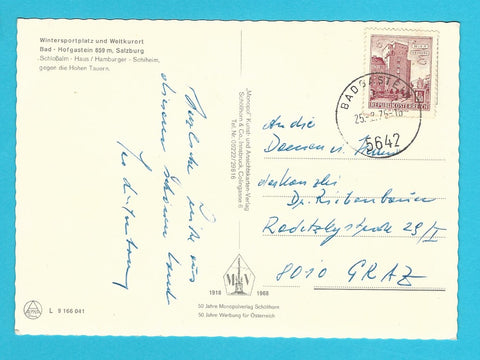 Wintersportplatz und Weltkurort
Bad - Hofgastein 859 m, Salzburg
Schloßalm - Haus / Hamburger - Schiheim,
gegen die Hohen Tauern.
Herzliche Grüße aus
diesem schönen Land
„Monopol" Kunst- und Ansichtskarten-Verlag
Schöllhorn & Co., Innsbruck, Colingasse 6
Tel. Nr. 05222/29816
1918 1968
50 Jahre Monopolverlag Schöllhorn
50 Jahre Werbung für Österreich
L 9 166 041
REPUBLIK ÖSTERREICH
BADGASTEIN
5642
An die
Damen u. Herren
der Kanzlei
Dr.
Radetzkystraße 29/I
8010 GRAZ